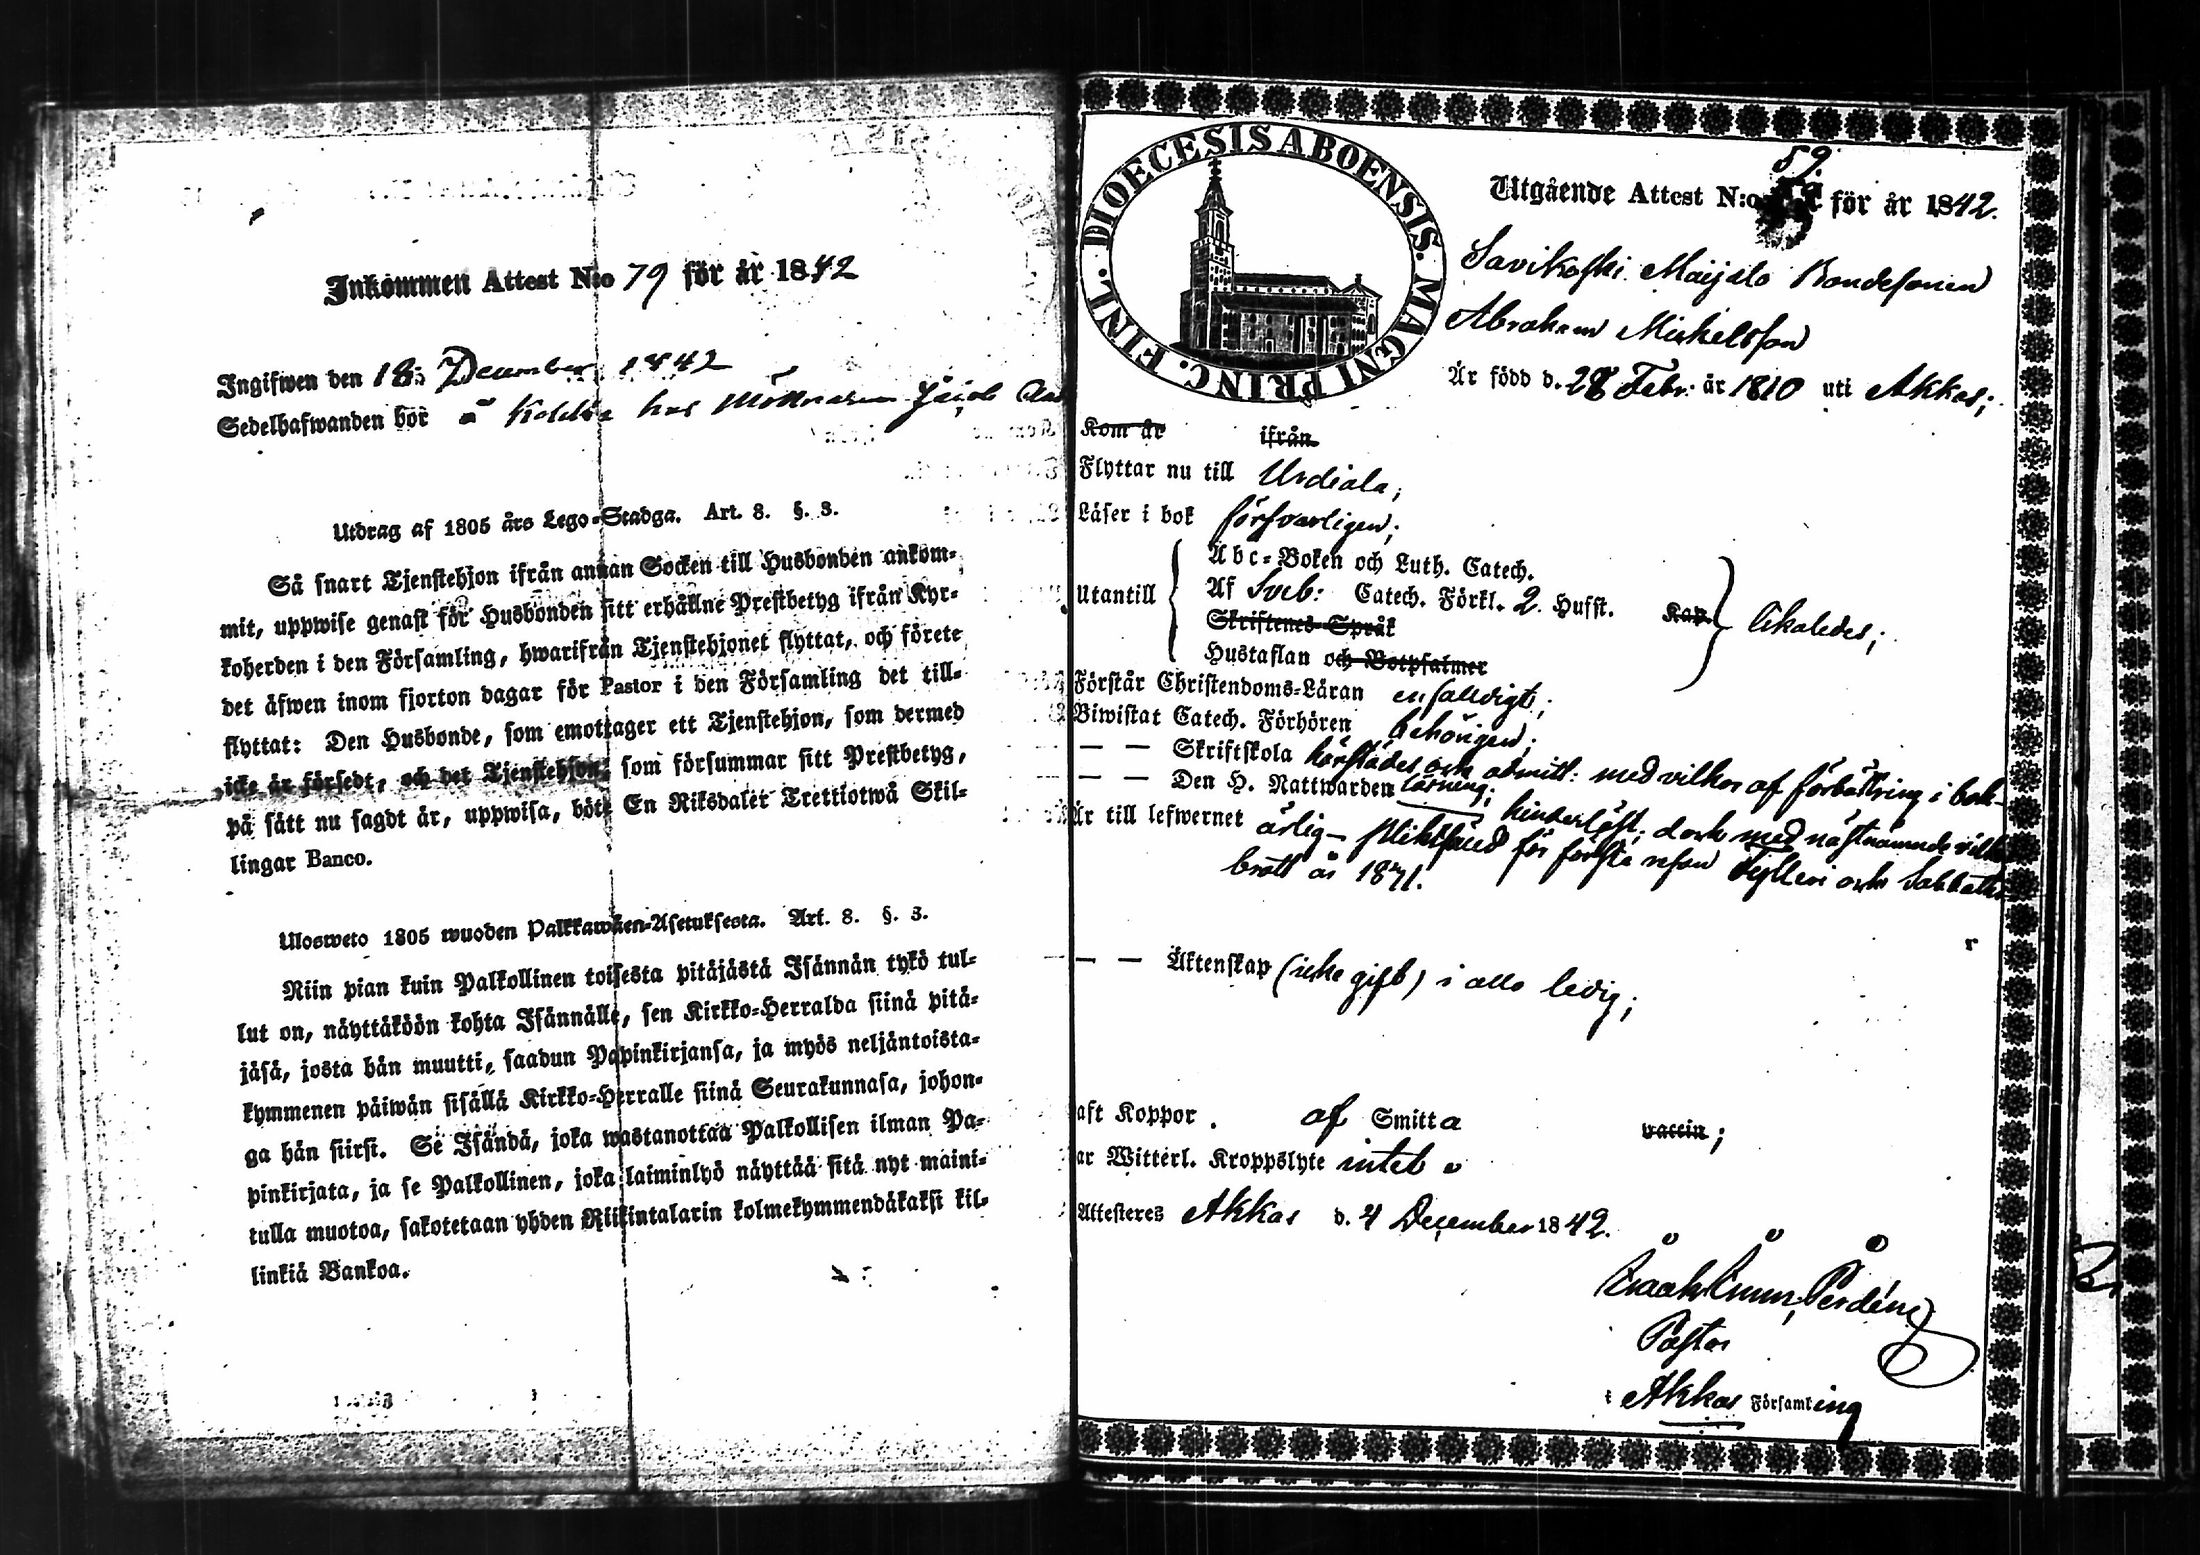 Inkommen Attest N:o 79 för år 1842
Ingifwen den 18 December 1842
Sedelhafwanden bor å hos Mölnaren
Utdrag af 1805 års Lego-Stadga. Art. 8. §. 3.
Så snart Tjenstehjon ifrån annan Socken till Husbonden ankom-
mit, uppwise genast för Husbonden sitt erhållne Prestbetyg ifrån Kyr-
koherden i den Församling, hwarifrån Tjenstehjonet flyttat, och förete
det äfwen inom fjorton dagar för Pastor i den Församling det till-
flyttat: Den Husbonde, som emottager ett Tjenstehjon, som dermed
icke är försedt, och det Tjenstehjon, som försummar sitt Prestbetyg,
på sätt nu sagdt är, uppwisa, böte En Riksdaler Trettiotwå Skil-
lingar Banco.
Ulosweto 1805 wuoden Palkkawäen-Asetuksesta. Art. 8. §. 3.
Niin pian kuin Palkollinen toisesta pitäjästä Isännän tykö tul-
lut on, näyttäköön kohta Isännälle, sen Kirkko-Herralda siinä pitä-
jäsä, josta hän muutti, saadun Papinkirjansa, ja myös neljäntoista-
kymmenen päiwän sisällä Kirkko-Herralle siinä Seurakunnasa, johon-
ga hän siirsi. Se Isändä, joka wastanottaa Palkollisen ilman Pa-
pinkirjata, ja se Palkollinen, joka laiminlyö näyttää sitä nyt maini-
tulla muotoa, sakotetaan yhden Riikintalarin kolmekymmendäkaksi kil-
linkiä Bankoa.
DIOECESIS ABOENSIS. MAGNI PRINC. FINL.
59.
Utgående Attest N:o för år 1842.
Savikoski Maijala Bondesonen
Abraham Mickelsson
Är född d. 28 Febr: år 1810 uti Akkas;
Kom år ifrån
Flyttar nu till Urdiala;
Läser i bok försvarligen;
Abc-Boken och Luth. Catech.
Utantill Af Sveb: Catech. Förkl. 2 Husst. Kap. likaledes;
Skriftenes Språk
Hustaflan och Botpsalmer
Förstår Christendoms-Läran enfalldigt;
Biwistat Catech. Förhören behörigen;
— — Skriftskola härstädes och admitt: med vilkor af förbättring i bok-
läsning;
— — Den H. Nattwarden hinderlöst; dock med nästnämnde
Är till lefwernet ärlig — pliktfäld för första resan fylleri och Sabbats
brott år 1841.
— — Äktenskap (icke gift) i allo ledig;
aft Koppor. af Smitta vaccin;
ar Witterl. Kroppslyte intet
Attesteres Akkas d. 4 December 1842.
Pastor
i Akkas Församling